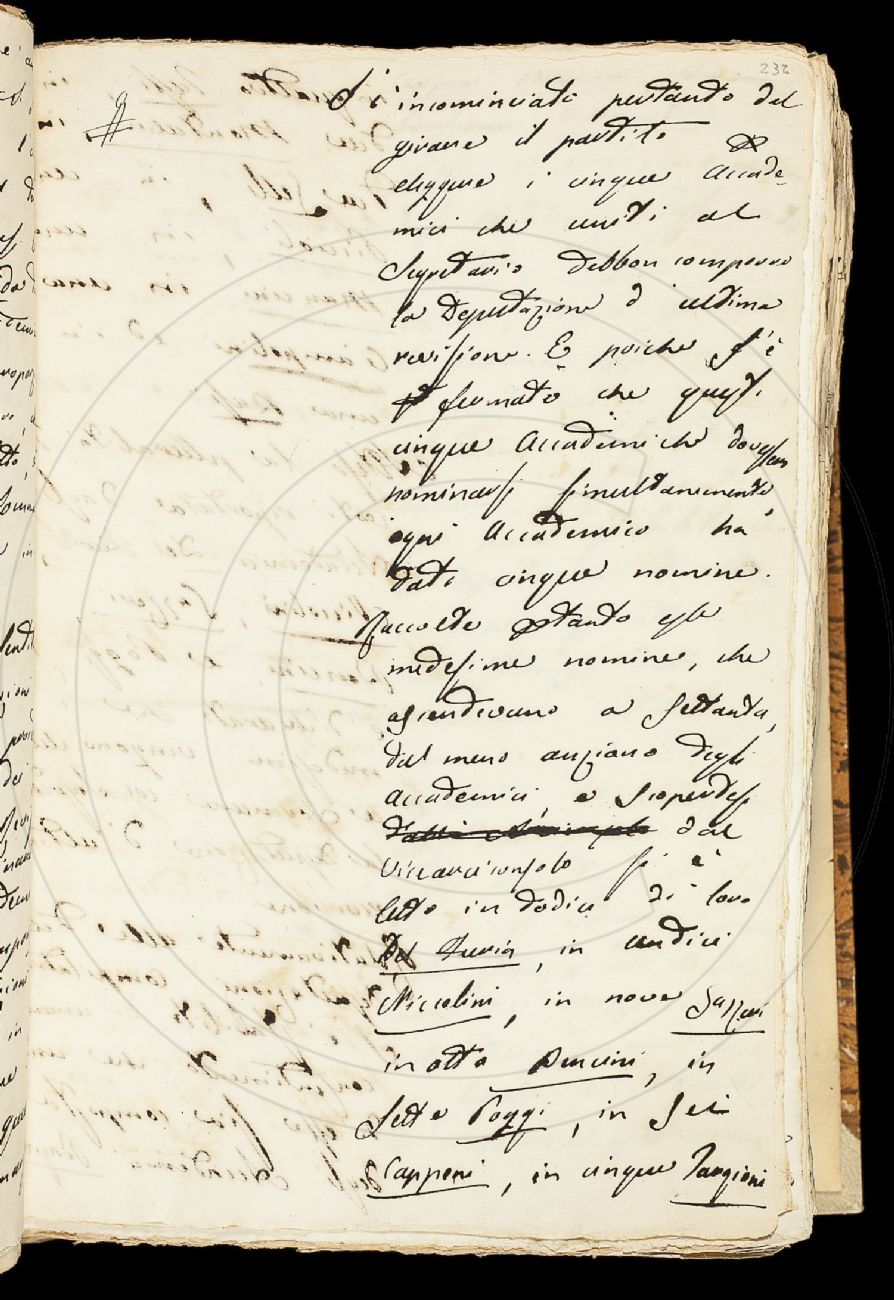 232
S'è incominciato pertanto dal
girare il partito
eleggere i cinque Accade-
mici che uniti al
Segretario debbon comporre
la Deputazione d'ultima
revisione. E poichè s'è
fermato che questi
cinque Accademiche dovessero
nominarsi simultanemente,
ogni Accademico ha
dati cinque nomine.
Raccolte ptanto esse
medesime nomine, che
ascendevano a settanta,
dal meno anziano degli
Accademici, e
dal
Vicearciconsolo si è
letto in dodici di loro
Del Furia, in undici
Niccolini, in nove Sazzeri
in otto Bencini, in
Sette Poggi, in Sei
Capponi, in cinque Targioni